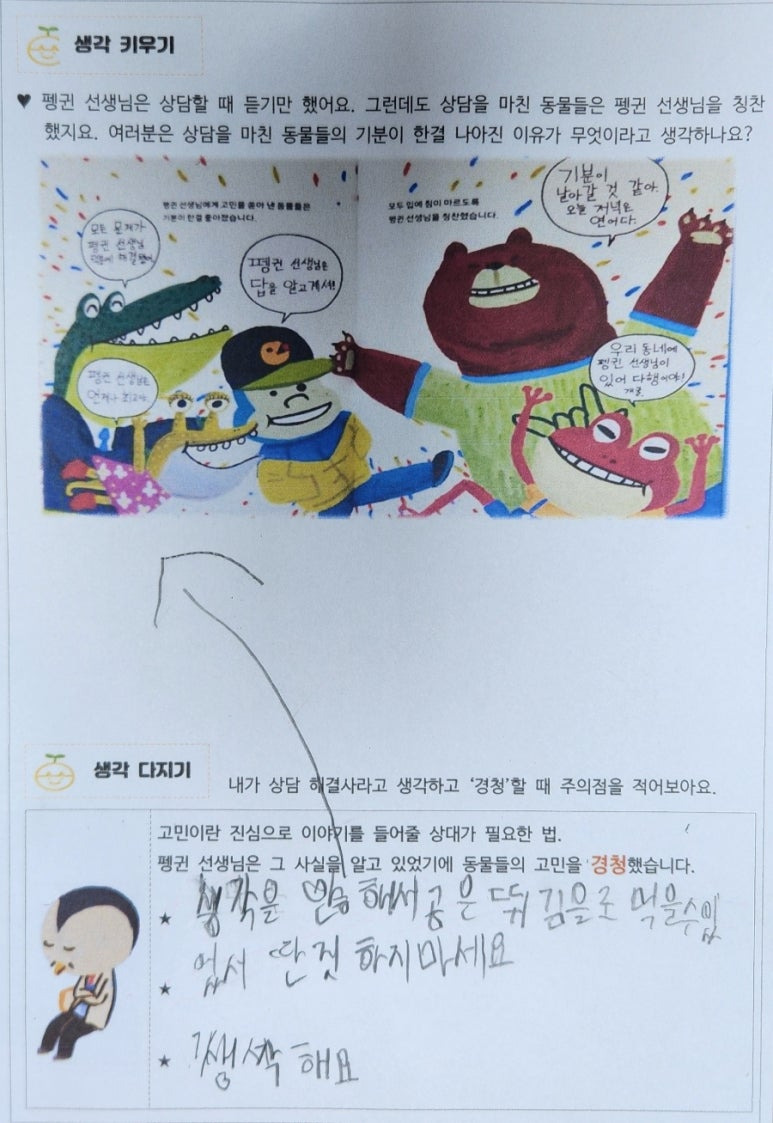 생각 키우기
♥ 펭귄 선생님은 상담할 때 듣기만 했어요. 그런데도 상담을 마친 동물들은 펭귄 선생님을 칭찬
했지요. 여러분은 상담을 마친 동물들의 기분이 한결 나아진 이유가 무엇이라고 생각하나요?
펭귄 선생님에게 고민을 쏟아 낸 동물들은
기분이 한결 좋아졌습니다.
모두 입에 침이 마르도록
펭귄 선생님을 칭찬했습니다.
기분이
날아갈 것 같아.
오늘 저녁은
연어다.
모든 문제가
펭귄 선생님
덕분에 해결됐어.
펭귄 선생님은
답을 알고 계셔!
펭귄 선생님은
언제나 최고야.
우리 동네에
펭귄 선생님이
있어 다행이야!
개굴.
생각 다지기
내가 상담 해결사라고 생각하고 '경청'할 때 주의점을 적어보아요.
고민이란 진심으로 이야기를 들어줄 상대가 필요한 법.
펭귄 선생님은 그 사실을 알고 있었기에 동물들의 고민을 경청했습니다.
★ 생각을 말해서 공은 뛰 김을로 먹을수
★ 업서 딴짓 하지마세요
★ 생각 해요